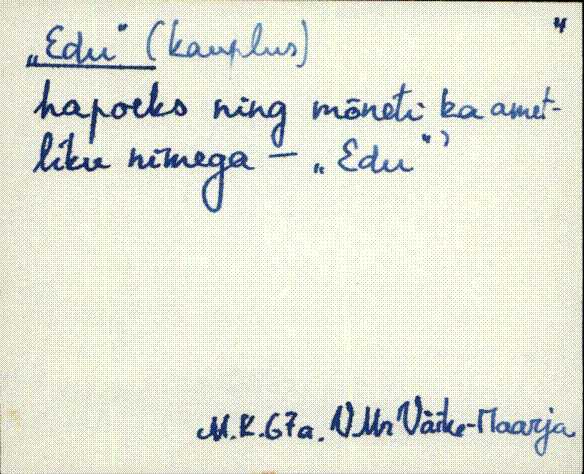 4
„Edu" (kauplus)
hapoeks ning mõneti ka amet-
liku nimega – „Edu"⁾
M.K. 67a. V.Mr Väike-Maarja